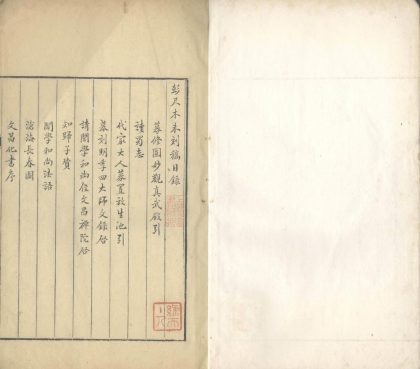 彭尺木未刻稿目錄
募修圓妙觀真武殿引
讀蜀志
代家大人募置放生池引
募刻明季四大師文錄啓
請聞學和尚住文昌禪院啓
知歸子贊
聞學和尚法語
瀛海長春圖
文昌化書序